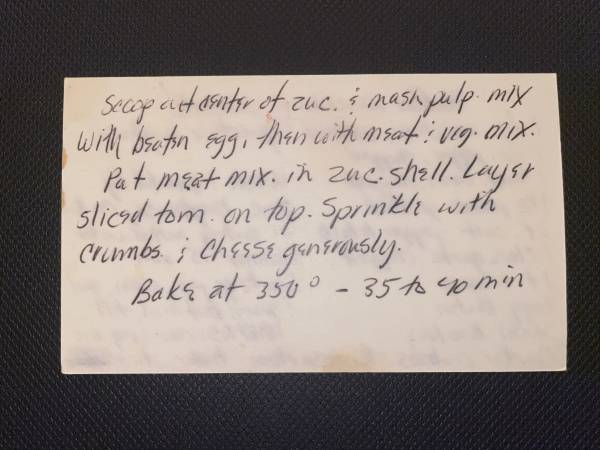 Scoop out center of zuc. & mash pulp. mix
with beaten egg, then with meat & veg. mix.
Put meat mix. in zuc. shell. Layer
sliced tom. on top. Sprinkle with
crumbs & cheese generously.
Bake at 350° - 35 to 40 min